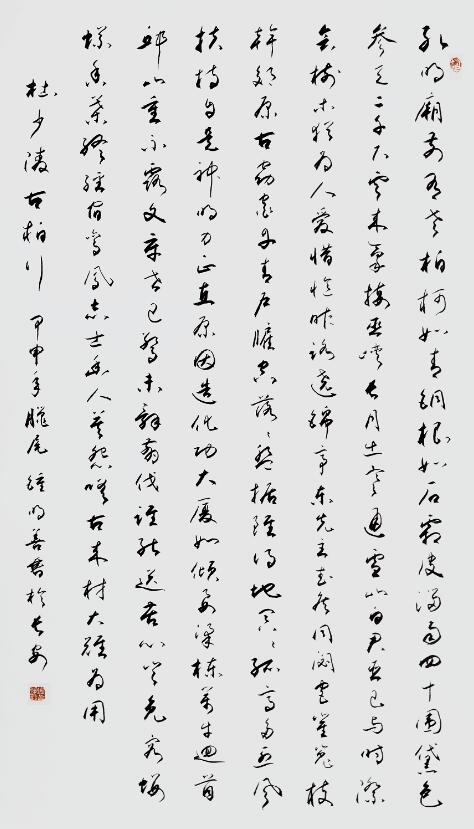 孔明廟前有老柏柯如青銅根如石霜皮溜雨四十圍黛色
參天二千尺雲來氣接巫峽長月出寒通雪山白君臣已与時際
會樹木猶為人愛惜憶昨路遶錦亭東先主武侯同閟宮崔嵬枝
幹郊原古窈窕丹青户牖空落々盤據雖得地冥々孤高多烈風
扶持自是神明力正直原因造化功大廈如傾要梁棟萬牛迴首
邱山重不露文章世已驚未辭翦伐誰能送苦心豈免容螻
蟻香葉終經宿鸞鳳志士幽人莫怨嗟古來材大難為用
杜少陵古柏行 甲申年臘尾鍾明善書於長安